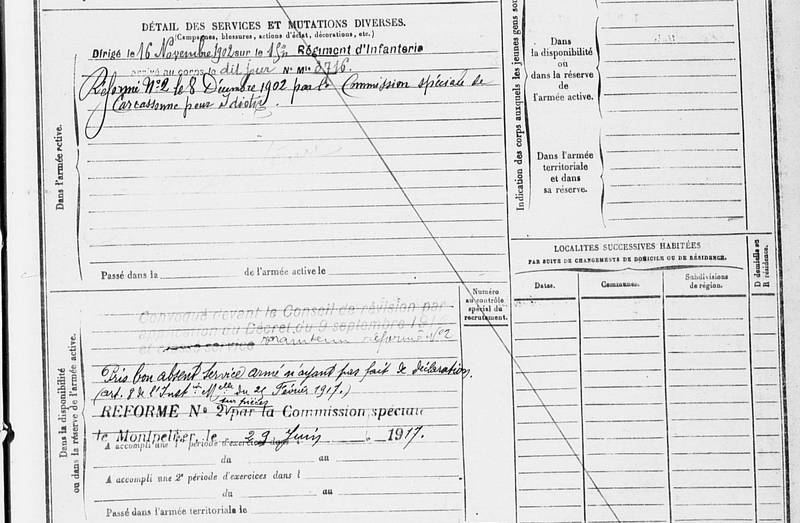 DÉTAIL DES SERVICES ET MUTATIONS DIVERSES.
(Campagnes, blessures, actions d'éclat, décorations, etc.)
Dirigé le 16 Novembre 1902 sur le 15e Régiment d'Infanterie
arrivé au corps le dit jour N° Mle 3716.
Réformé N°2 le 8 Décembre 1902 par la Commission spéciale de
Carcassonne pour
Dans l'armée active.
Passé dans la de l'armée active le
Indication des corps auxquels les jeunes gens
Dans
la disponibilité
ou
dans la réserve
de
l'armée active.
Dans l'armée
territoriale
et dans
sa réserve.
LOCALITÉS SUCCESSIVES HABITÉES
PAR SUITE DE CHANGEMENTS DE DOMICILE OU DE RÉSIDENCE.
Dates.
Communes.
Subdivisions
de région.
D domicile ou
R résidence.
Numéro
au contrôle
spécial du
recrutement.
Dans la disponibilité
ou dans la réserve de l'armée active.
Convoqué devant le Conseil de révision par
application du Décret du 9 septembre 1914
maintenu réformé N°2
Pris bon absent Service armé n'ayant pas fait de déclaration.
(art. 8 de l'Inst on Mlle du 21 Février 1917.)
sur pièces
REFORME N° 2 par la Commission spéciale
de Montpellier, le 29 Juin 1917.
A accompli une 1re période d'exercices dans l
du au
A accompli une 2e période d'exercices dans l
du au
Passé dans l'armée territoriale le